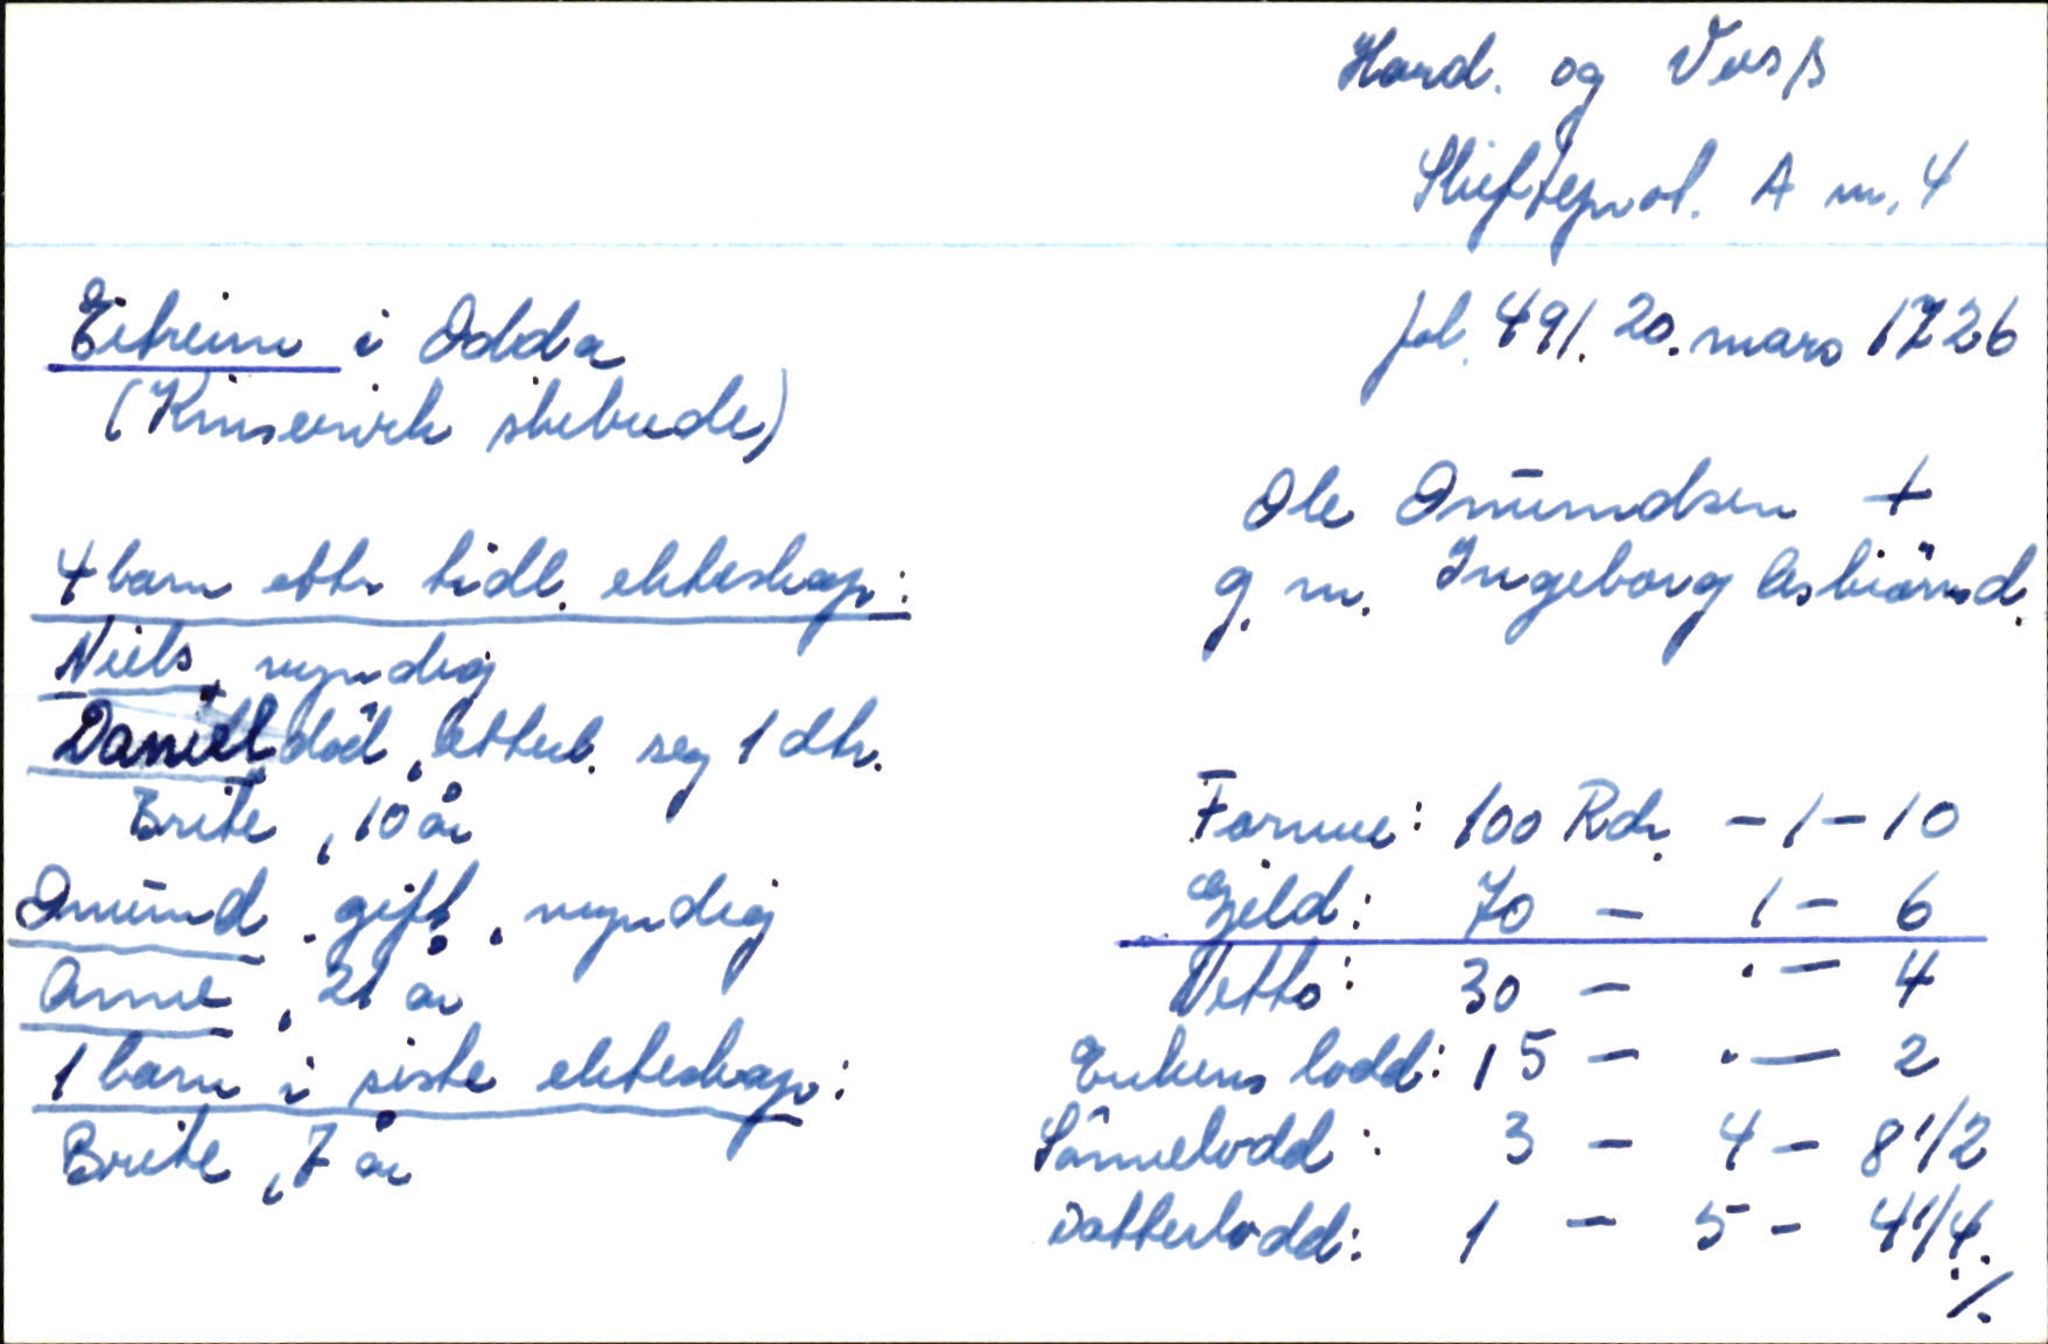 Hard. og Voss
Skifteprot. A nr. 4
Eitreim i Odda
(Kinservik skibrede)
fol. 491. 20. mars 1726
Ole Omŭndsen +
g. m. Ingeborg Asbiörnsd.
4 barn etter tidl. ekteskap:
Niels, myndig
Daniel död, etterl. seg 1 dtr.
Brite, 10 år
Omŭnd, gift, myndig
Anne, 21 år
1 barn i siste ekteskap:
Brite, 7 år
Formue: 100 Rdr. - 1 - 10
Gjeld: 70 - 1 - 6
Netto: 30 - . - 4
Enkens lodd: 15 - . - 2
Sönnelodd: 3 - 4 - 8 1/2
Datterlodd: 1 - 5 - 4 1/4.
/.